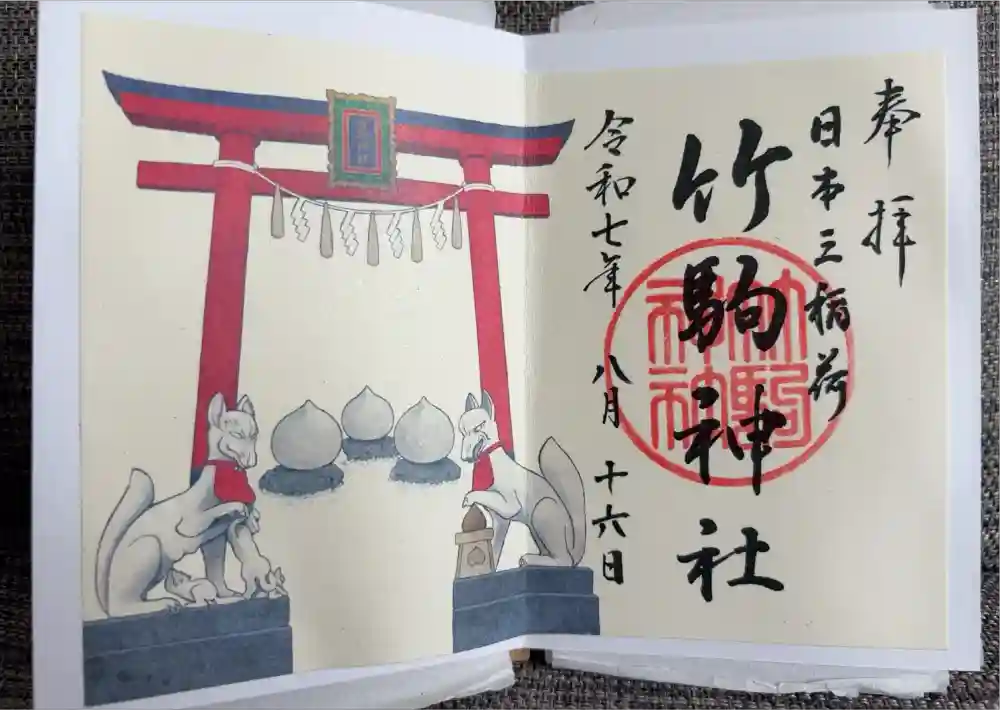 奉拝
日本三稲荷
竹駒神社
竹駒神社
令和七年 八月 十六日